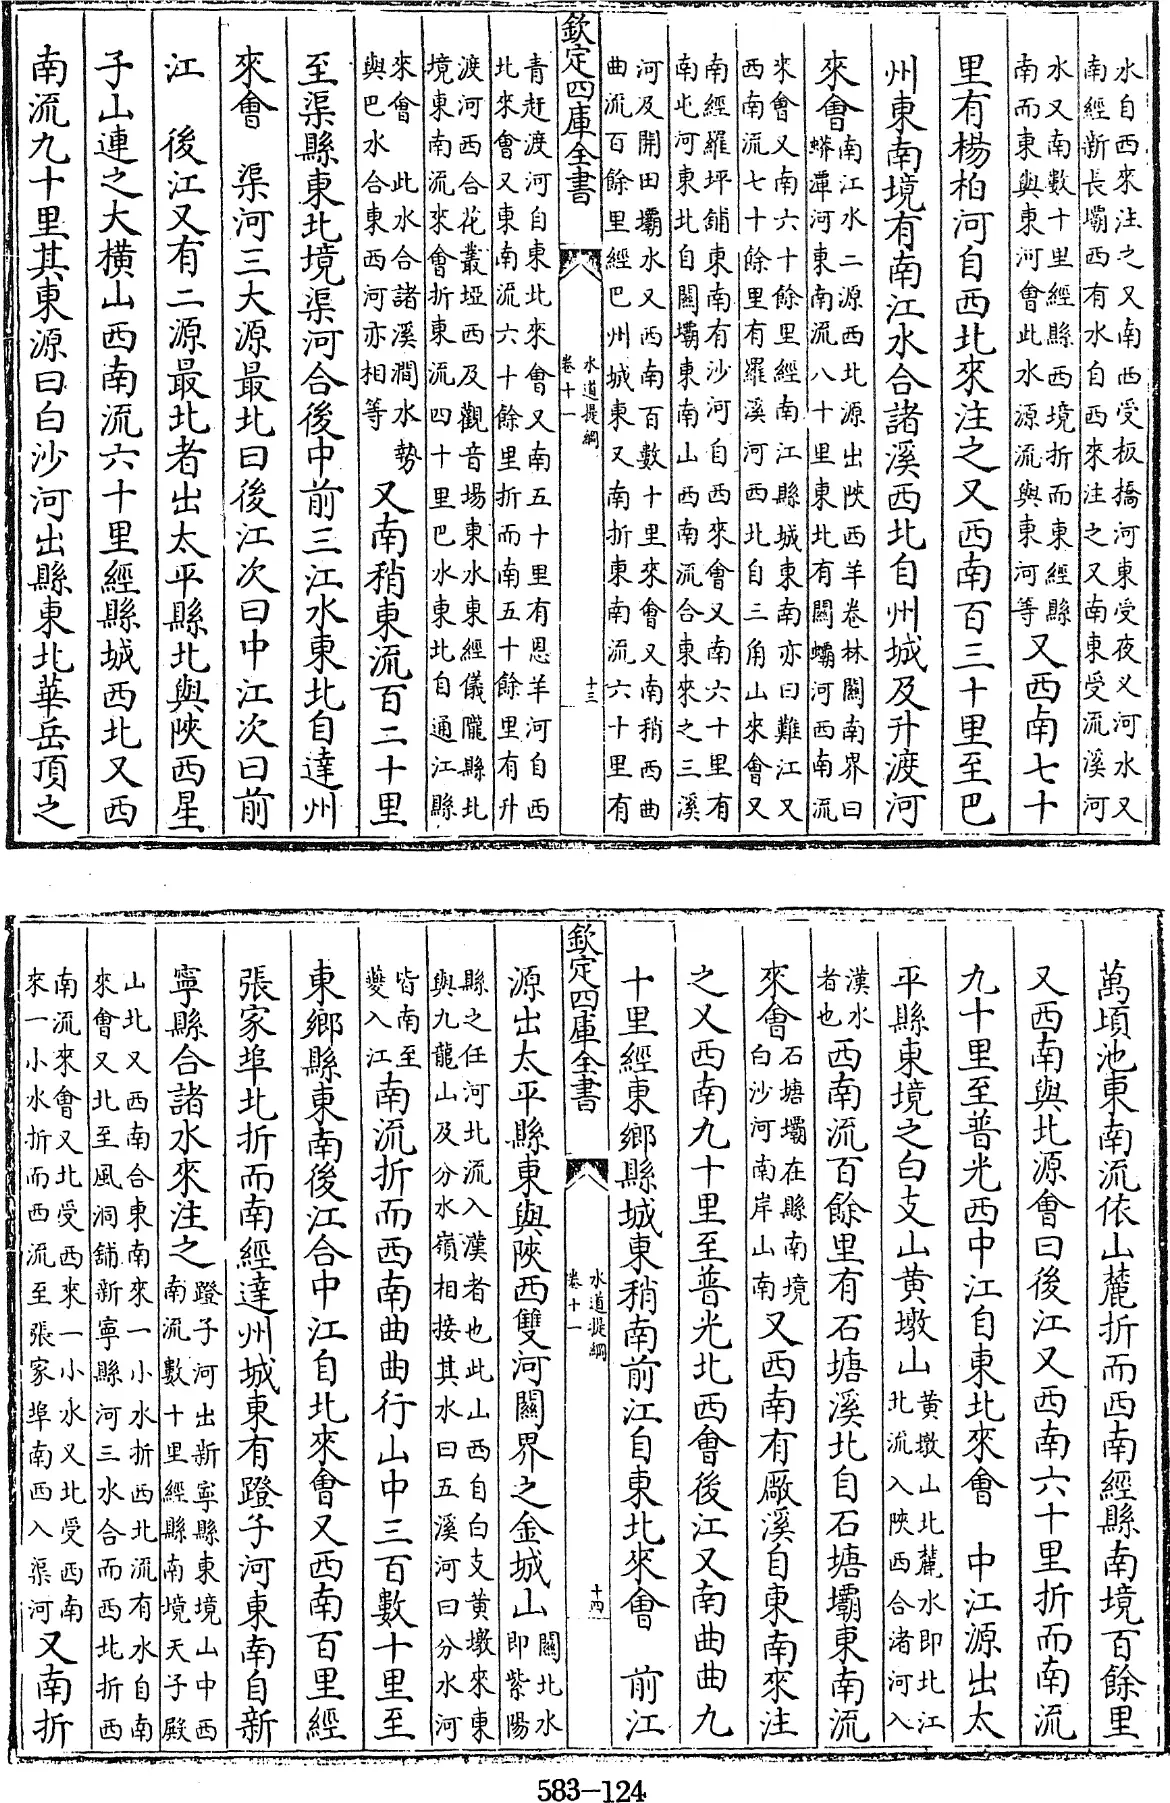 水自西來注之又南西受板橋河東受夜义河水又
南經新長壩西有水自西來注之又南東受流溪河
水又南數十里經縣西境折而東經縣
南而東與東河會此水源流與東河等
又西南七十
里有楊柏河自西北來注之又西南百三十里至巴
州東南境有南江水合諸溪西北自州城及升渡河
來會
南江水二源西北源出陜西羊卷林關南界曰
蟒潭河東南流八十里東北有關壩河西南流
來會又南六十餘里經南江縣城東南亦曰難江又
西南流七十餘里有羅溪河西北自三角山來會又
南經羅坪舖東南有沙河自西來會又南六十里有
南屯河東北自關壩東南山西南流合東來之三溪
河及開田壩水又西南百數十里來會又南稍西曲
曲流百餘里經巴州城東又南折東南流六十里有
欽定四庫全書
水道提綱
卷十一
十三
青赶渡河自東北來會又南五十里有恩羊河自西
北來會又東南流六十餘里折而南五十餘里有升
渡河西合花叢埡西及觀音場東水東經儀隴縣北
境東南流來會折東流四十里巴水東北自通江縣
來會此水合諸溪澗水勢
與巴水合東西河亦相等
又南稍東流百二十里
至渠縣東北境渠河合後中前三江水東北自達州
來會 渠河三大源最北曰後江次曰中江次曰前
江 後江又有二源最北者出太平縣北與陜西星
子山連之大橫山西南流六十里經縣城西北又西
南流九十里其東源曰白沙河出縣東北華岳頂之
萬頃池東南流依山麓折而西南經縣南境百餘里
又西南與北源會曰後江又西南六十里折而南流
九十里至普光西中江自東北來會 中江源出太
平縣東境之白支山黄墩山
黄墩山北麓水即北江
北流入陜西合渚河入
漢水
者也
西南流百餘里有石塘溪北自石塘壩東南流
來會
石塘壩在縣南境
白沙河南岸山南
又西南有廠溪自東南來注
之又西南九十里至普光北西會後江又南曲曲九
十里經東鄉縣城東稍南前江自東北來會 前江
欽定四庫全書
水道提綱
卷十一
十四
源出太平縣東與陜西雙河關界之金城山
關北水
即紫陽
縣之任河北流入漢者也此山西自白支黄墩來東
與九龍山及分水嶺相接其水曰五溪河曰分水河
皆南至
夔入江
南流折而西南曲曲行山中三百數十里至
東鄉縣東南後江合中江自北來會又西南百里經
張家埠北折而南經達州城東有蹬子河東南自新
寧縣合諸水來注之
蹬子河出新寧縣東境山中西
南流數十里經縣南境天子殿
山北又西南合東南來一小水折西北流有水自南
來會又北至風洞舖新寧縣河三水合而西北折西
南流來會又北受西來一小水又北受西南
來一小水折而西流至張家埠南西入渠河
又南折
583-124